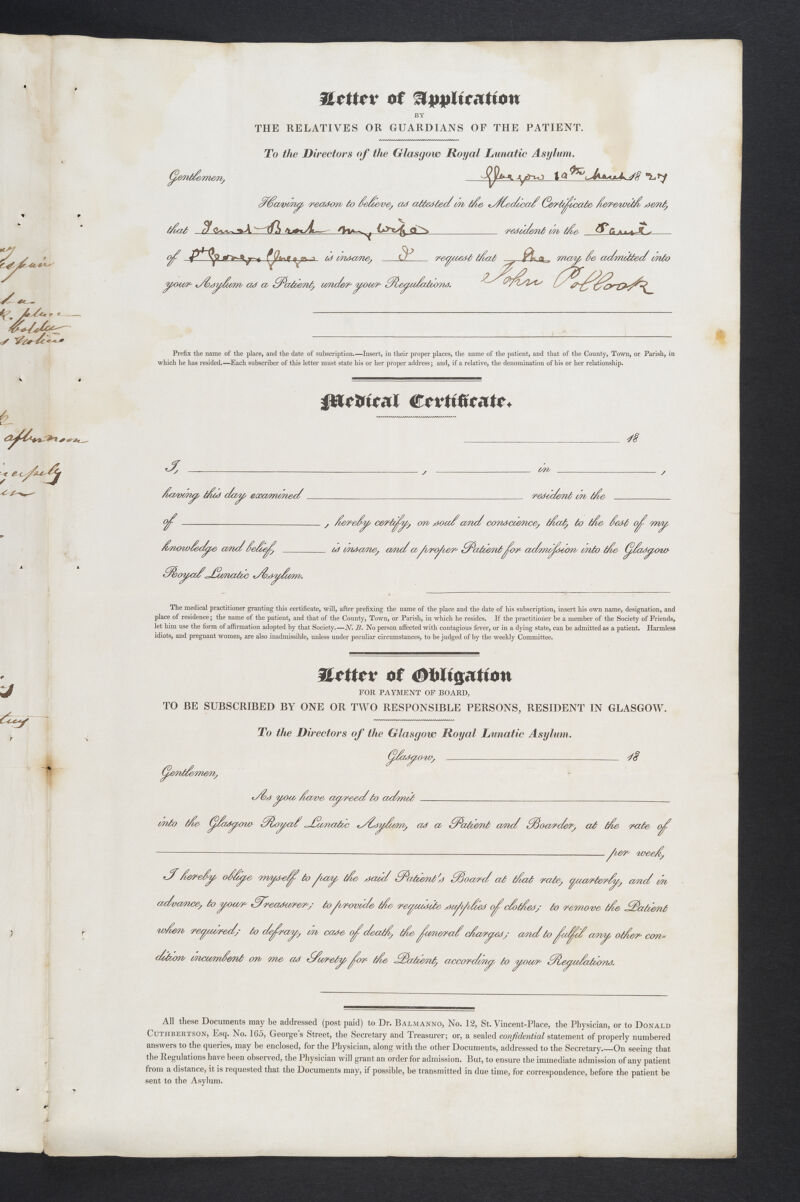 Letter of Application
BY
THE RELATIVES OR GUARDIANS OF THE PATIENT.
To the Directors of the Glasgow Royal Lunatic Asylum.
Gentlemen,
Glasgow 19th March 1827
Having reason to believe, as attested in the Medical Certificate herewith sent,
that Jennet Brock my wife resident in the
of St Georges Glasgow is insane, I request that She may be admitted into
your Asylum as a Patient, under your Regulations. John Pollock
Prefix the name of the place, and the date of subscription.—Insert, in their proper places, the name of the patient, and that of the County, Town, or Parish, in
which he has resided.—Each subscriber of this letter must state his or her proper address; and, if a relative, the denomination of his or her relationship.
Medical Certificate.
18
I, , in ,
having this day examined resident in the
of , hereby certify, on soul and conscience, that, to the best of my
knowledge and belief, is insane, and a proper Patient for admission into the Glasgow
Royal Lunatic Asylum.
The medical practitioner granting this certificate, will, after prefixing the name of the place and the date of his subscription, insert his own name, designation, and
place of residence; the name of the patient, and that of the County, Town, or Parish, in which he resides. If the practitioner be a member of the Society of Friends,
let him use the form of affirmation adopted by that Society.—N. B. No person affected with contagious fever, or in a dying state, can be admitted as a patient. Harmless
idiots, and pregnant women, are also inadmissible, unless under peculiar circumstances, to be judged of by the weekly Committee.
Letter of Obligation
FOR PAYMENT OF BOARD,
TO BE SUBSCRIBED BY ONE OR TWO RESPONSIBLE PERSONS, RESIDENT IN GLASGOW.
To the Directors of the Glasgow Royal Lunatic Asylum.
Glasgow, 18
Gentlemen,
As you have agreed to admit
into the Glasgow Royal Lunatic Asylum, as a Patient and Boarder, at the rate of
per week,
I hereby oblige myself to pay the said Patient's Board at that rate, quarterly, and in
advance, to your Treasurer; to provide the requisite supplies of clothes; to remove the Patient
when required; to defray, in case of death, the funeral charges; and to fulfil any other con-
dition incumbent on me as Surety for the Patient, according to your Regulations.
All these Documents may be addressed (post paid) to Dr. BALMANNO, No. 12, St. Vincent-Place, the Physician, or to DONALD
CUTHBERTSON, Esq. No. 165, George's Street, the Secretary and Treasurer; or, a sealed confidential statement of properly numbered
answers to the queries, may be enclosed, for the Physician, along with the other Documents, addressed to the Secretary.—On seeing that
the Regulations have been observed, the Physician will grant an order for admission. But, to ensure the immediate admission of any patient
from a distance, it is requested that the Documents may, if possible, be transmitted in due time, for correspondence, before the patient be
sent to the Asylum.
afternoon